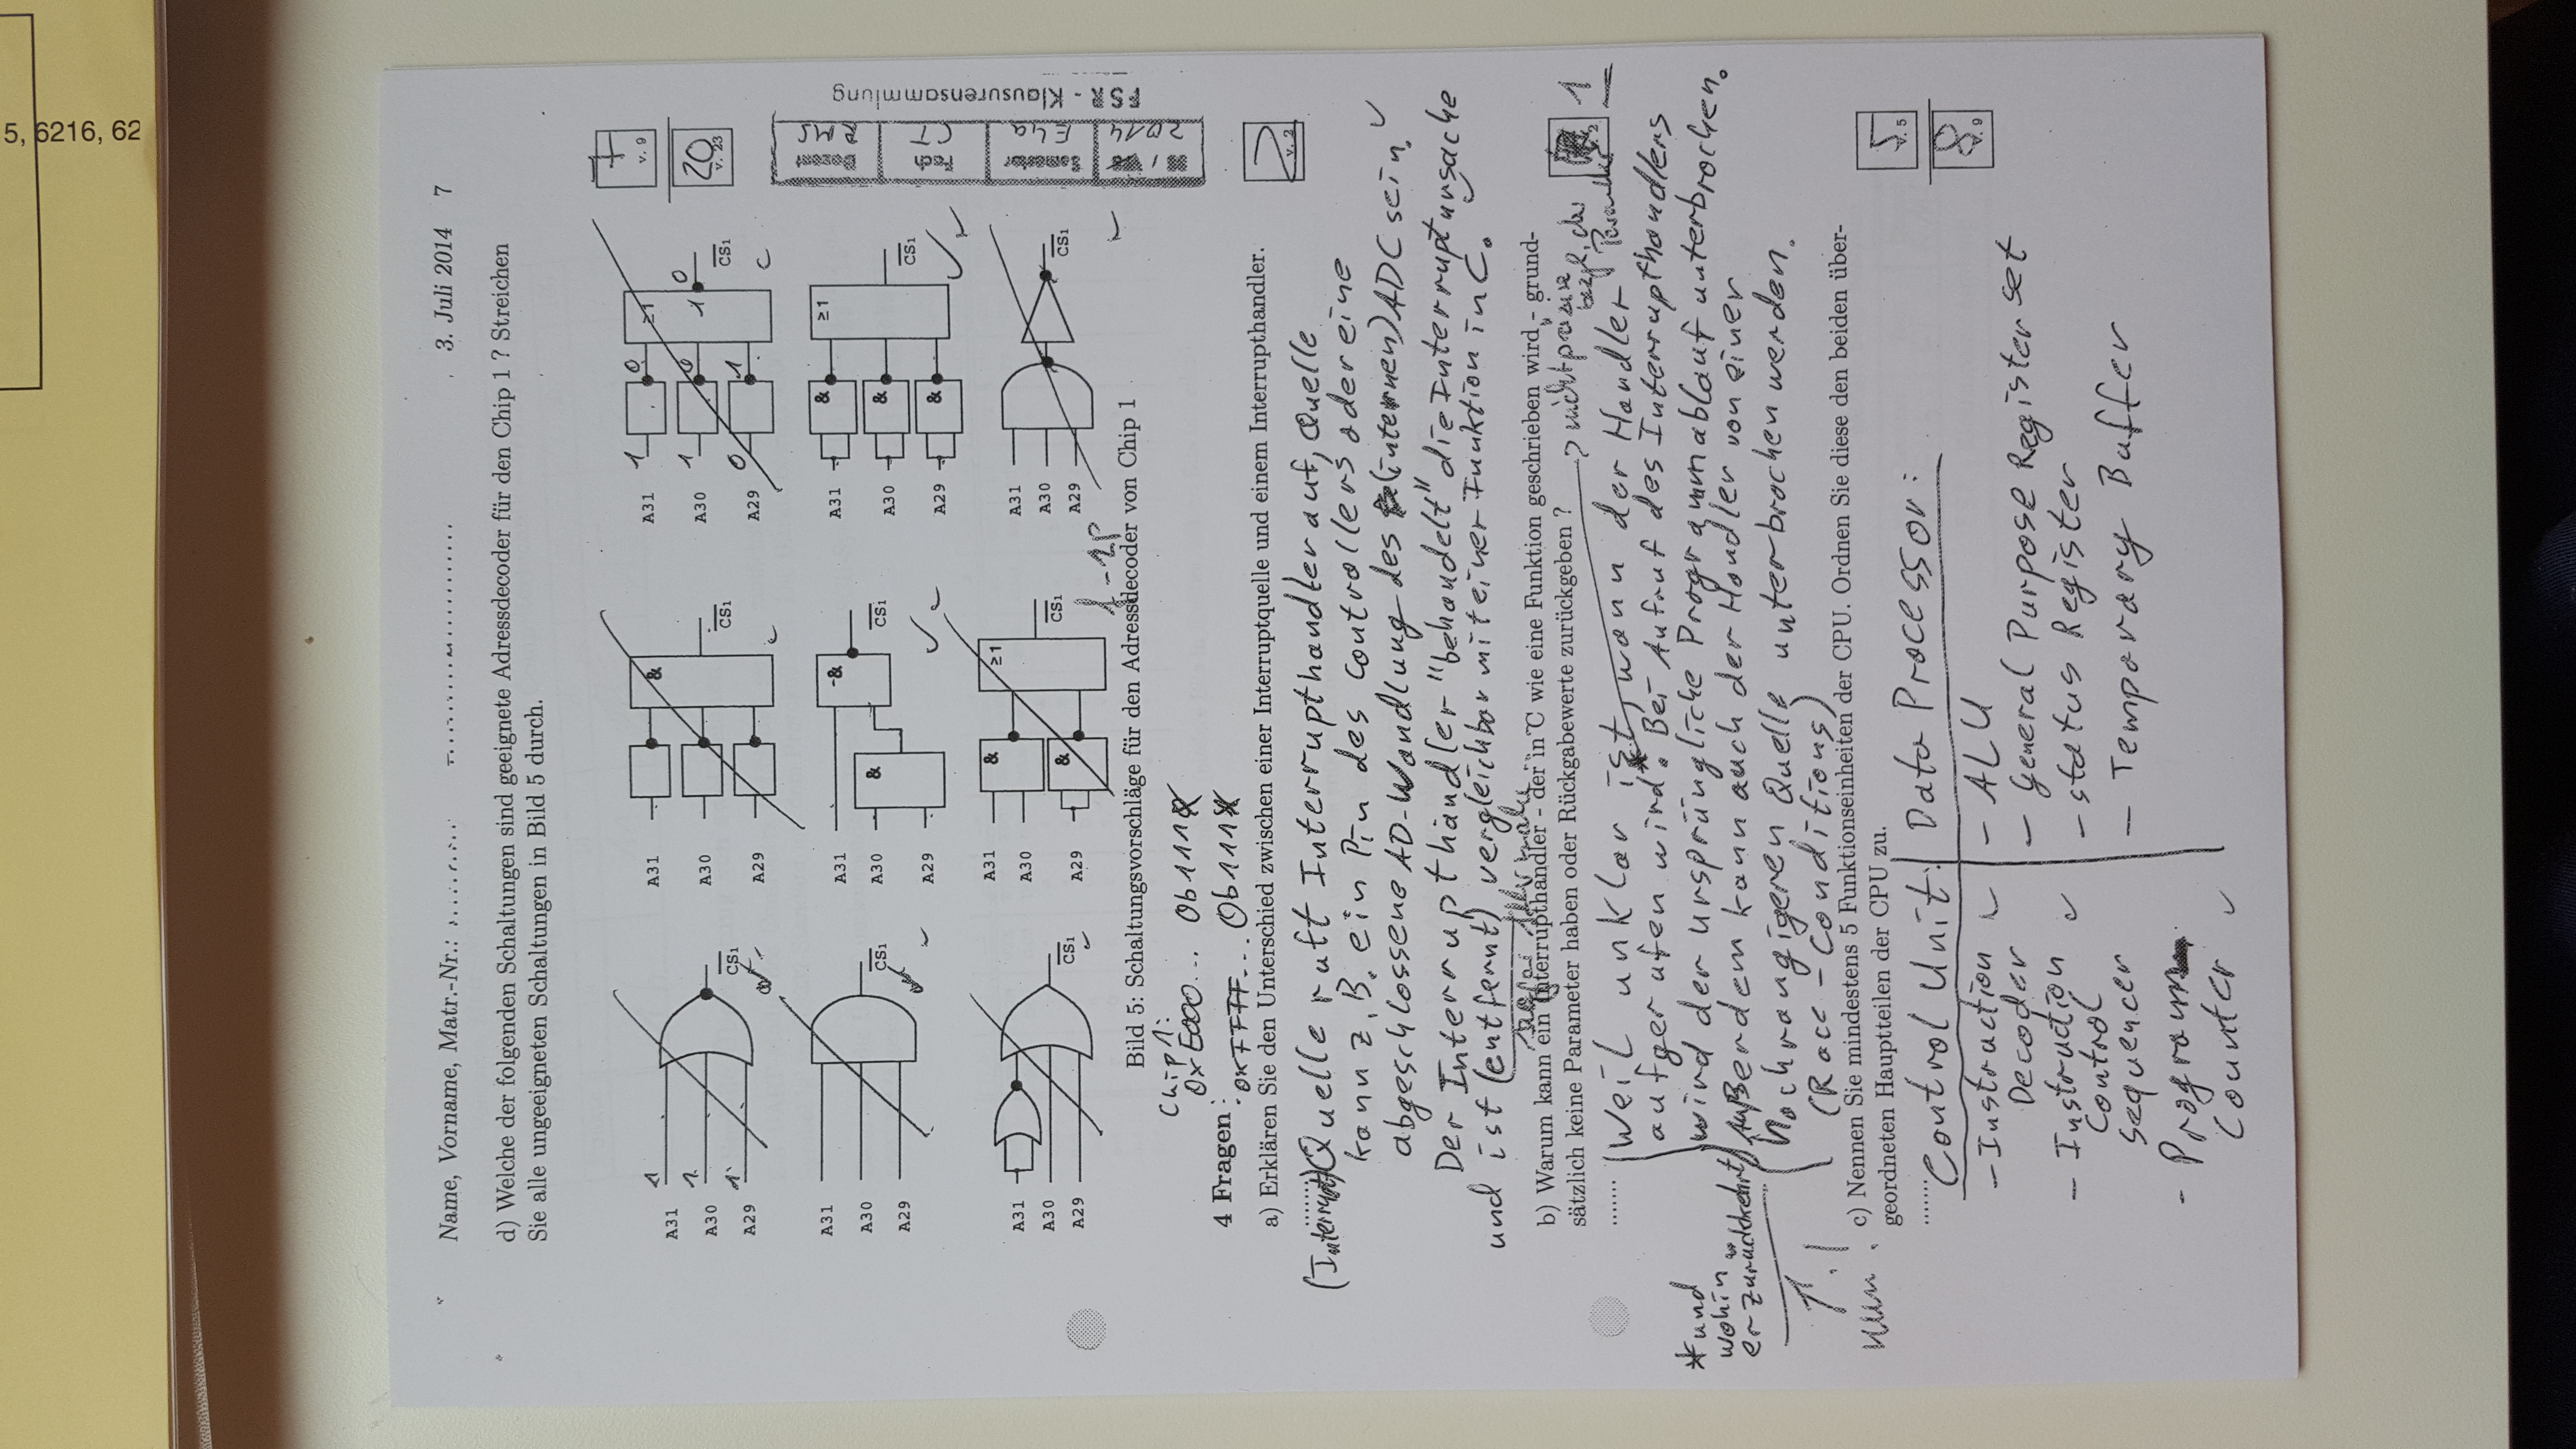 5, 6216, 62
Name, Vorname, Matr.-Nr.: 3. Juli 2014 7
d) Welche der folgenden Schaltungen sind geeignete Adressdecoder für den Chip 1 ? Streichen
Sie alle ungeeigneten Schaltungen in Bild 5 durch.
7
v. 9
20
v. 23
A31 1
A30 1
A29 1
CS1
A31
A30
A29
&
CS1
A31 1 0
A30 1 0
A29 0 1
≥1
1 0
CS1
A31
A30
A29
CS1
A31
A30
A29
&
&
CS1
A31 &
A30 &
A29 &
≥1
CS1
A31
A30
A29
CS1
A31
A30
A29
&
&
≥1
CS1
A31
A30
A29
CS1
f -1P
Bild 5: Schaltungsvorschläge für den Adressdecoder von Chip 1
Semester Fach Dozent
2014 E4a CT RMS
FSR - Klausurensammlung
Chip 1:
0xE000... 0b111
0xFFFF... 0b111
4 Fragen
a) Erklären Sie den Unterschied zwischen einer Interruptquelle und einem Interrupthandler.
v. 2
(Interrupt) Quelle ruft Interrupthandler auf, Quelle
kann z.B. ein Pin des Controllers oder eine
abgeschlossene AD-Wandlung des (internen) ADC sein.
Der Interrupthandler "behandelt" die Interruptursache
und ist (entfernt) vergleichbar mit einer Funktion in C.
b) Warum kann ein Interrupthandler - der in C wie eine Funktion geschrieben wird - grund-
sätzlich keine Parameter haben oder Rückgabewerte zurückgeben ?
nicht präzise
bezgl. der
1
Weil unklar ist, wann der Handler
aufgerufen wird*. Bei Aufruf des Interrupthandlers
wird der ursprüngliche Programmablauf unterbrochen.
Außerdem kann auch der Handler von einer
hochrangigeren Quelle unterbrochen werden.
(Race - Conditions)
*und
wohin
er zurückkehrt
c) Nennen Sie mindestens 5 Funktionseinheiten der CPU. Ordnen Sie diese den beiden über-
geordneten Hauptteilen der CPU zu.
5
v. 5
8
v. 9
Control Unit: Data Processor:
- Instruction
Decoder
- Instruction
Control
Sequencer
- Program
Counter
- ALU
- General Purpose Register set
- Status Register
- Temporary Buffer